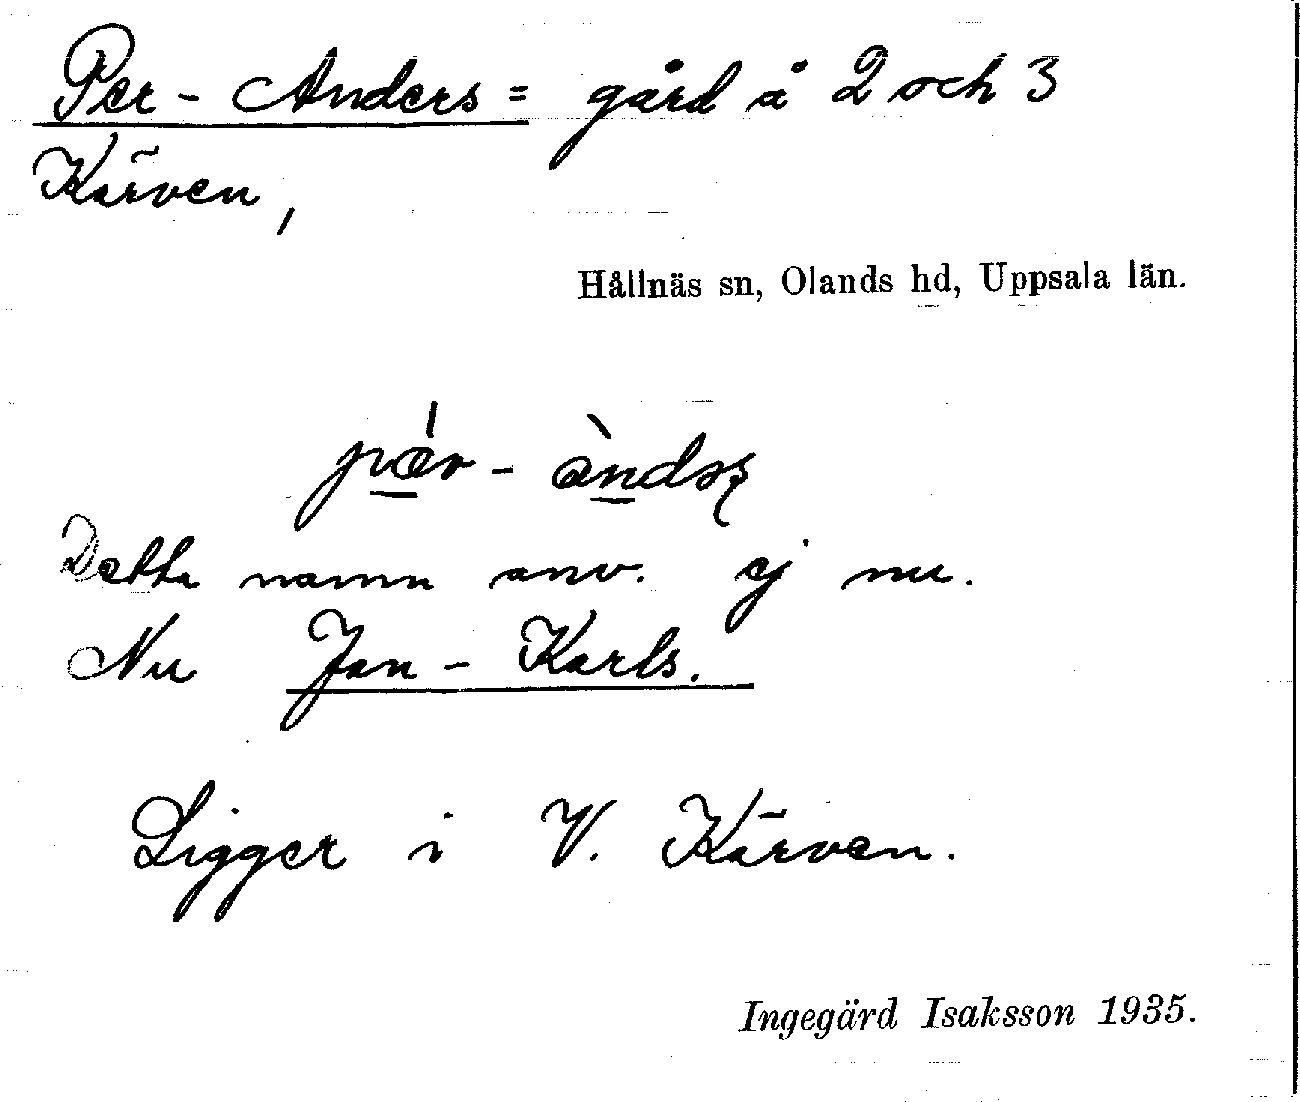 Per-Anders = gård å 2 och 3
Kärven,
Hållnäs sn, Olands hd, Uppsala län.
Detta namn anv. ej nu.
Nu Jan-Karls.
Ligger i V. Kärven.
Ingegärd Isaksson 1935.